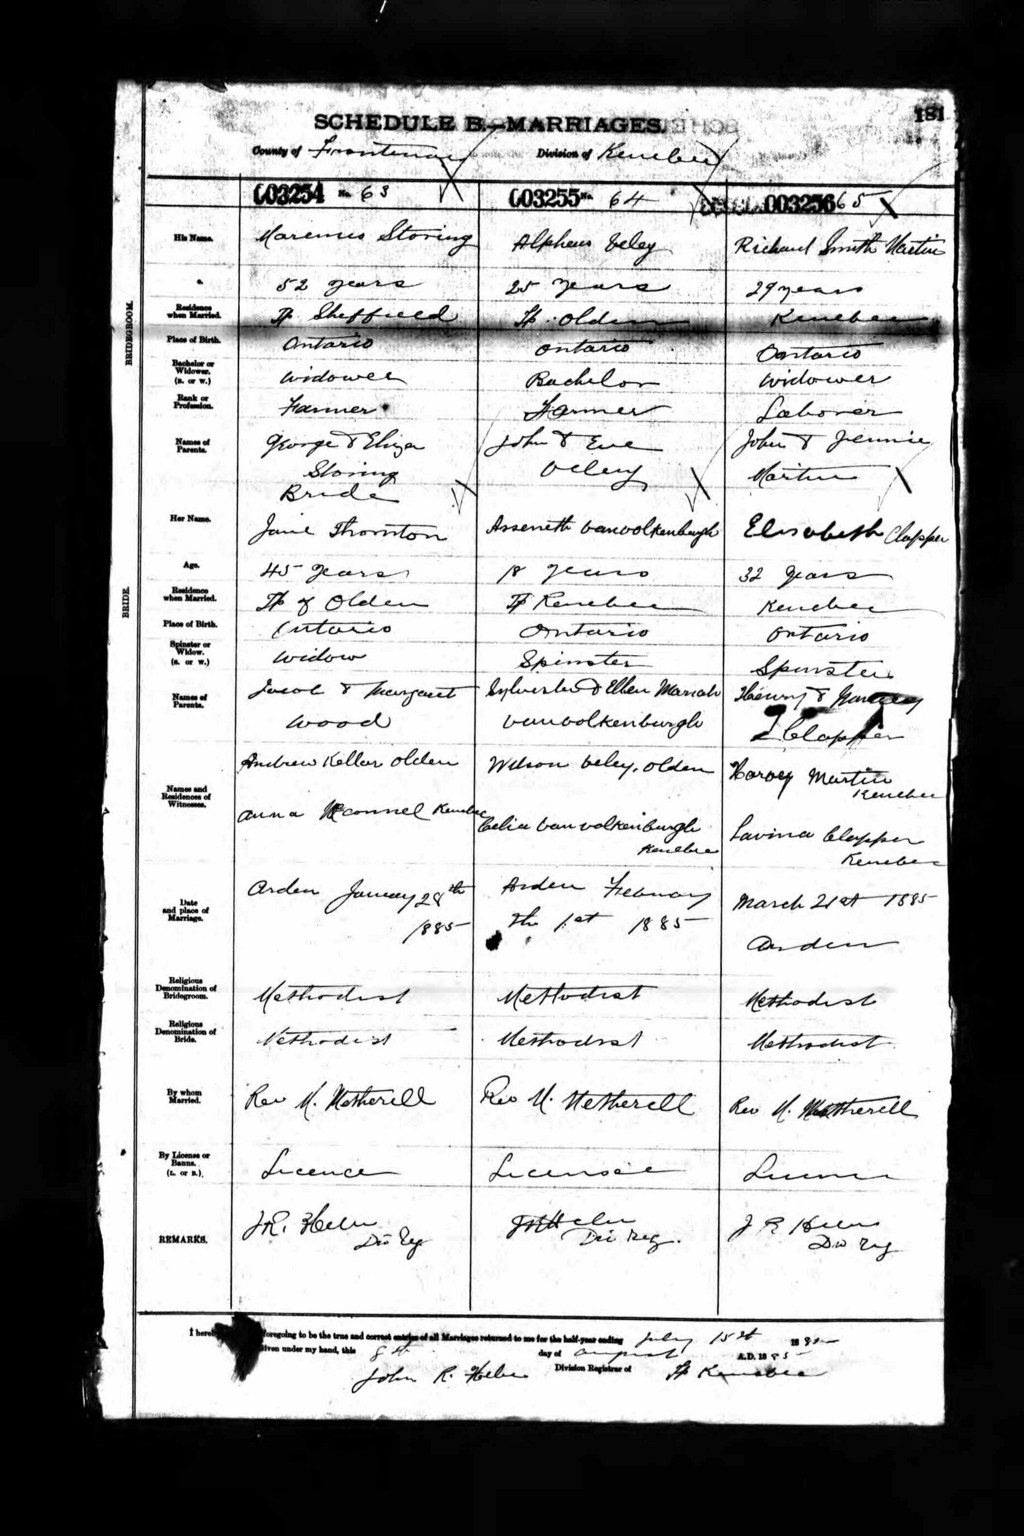 181
SCHEDULE B.—MARRIAGES.
County of Frontenac Division of Kenebec
003254 No. 63 003255 No. 64 003256 65
His Name. Marenus Storing Alpheus Veley Richard Smith Martin
52 years 25 years 29 years
Residence when Married. Tp Sheffield Tp. Olden Kenebec
Place of Birth. Ontario Ontario Ontario
Bachelor or Widower. (B. or W.) Widower Bachelor Widower
Rank or Profession. Farmer Farmer Laborer
Names of Parents. George & Eliza John & Eve John & Jennie
Storing Veley Martin
Bride
Her Name. Jane Thornton Asseneth Vanvolkenburgh Elisabeth Clapper
Age. 45 years 18 years 32 years
Residence when Married. Tp of Olden Tp Kenebec Kenebec
Place of Birth. Ontario Ontario Ontario
Spinster or Widow. (S. or W.) Widow Spinster Spinster
Names of Parents. Jacob & Margaret Sylvester & Ellen Mariah Henry &
Wood Vanvolkenburgh Clapper
Names and Residences of Witnesses. Andrew Kellar Olden Wilson Veley, Olden Harvey Martin Kenebec
Anna McConnel Kenebec Celia Vanvolkenburgh Kenebec Lavina Clapper Kenebec
Date and place of Marriage. Arden January 28th 1885 Arden February the 1st 1885 March 21st 1885 Arden
Religious Denomination of Bridegroom. Methodist Methodist Methodist
Religious Denomination of Bride. Methodist Methodist Methodist
By whom Married. Rev M. Netherill Rev M. Netherill Rev M. Netherill
By License or Banns. (L. or B.) Licence License
REMARKS. J.R. Div Reg Div Reg. J R Div Reg
BRIDEGROOM.
BRIDE.
I hereby foregoing to be the true and correct entries of all Marriages returned to me for the half-year ending July 15th 1885
Given under my hand, this 8th day of August A.D. 1885
John R. Division Registrar of Tp Kenebec